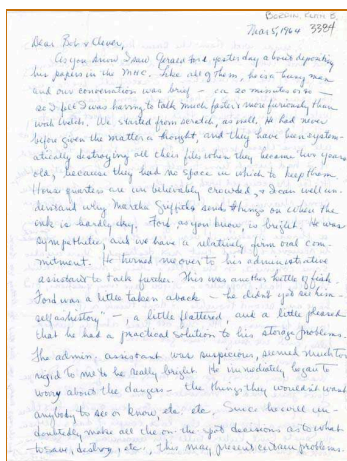 BORDIN, RUTH B.
Mar 5, 1964 3384
Dear Bob & Clever,
As you know I saw Gerald Ford yesterday about depositing
his papers in the MHC. Like all of them, he is a busy man
and our conversation was brief — ca 20 minutes or so —
so I feel I was having to talk much faster & more furiously than
with Welch. We started from scratch, as well. He had never
before given the matter a thought, and they have been system-
atically destroying all their files when they became two years
old, because they had no space in which to keep them.
House quarters are unbelievably crowded, & I can well un-
derstand why Martha Griffiths sends things on when the
ink is hardly dry. Ford, as you know, is bright. He was
sympathetic, and we have a relatively firm oral com-
mitment. He turned me over to his administrative
assistant to talk further. This was another kettle of fish.
Ford was a little taken aback — he didn't yet see him-
self as "history" —, a little flattered, and a little pleased
that he had a practical solution to his storage problems.
The admin. assistant was suspicious, seemed much too
rigid to me to be really bright. He immediately began to
worry about the dangers — the things they wouldn't want
anybody to see or know, etc. etc. Since he will un-
doubtedly make all the on-the-spot decisions as to what
to save, destroy, etc., this may present certain problems.